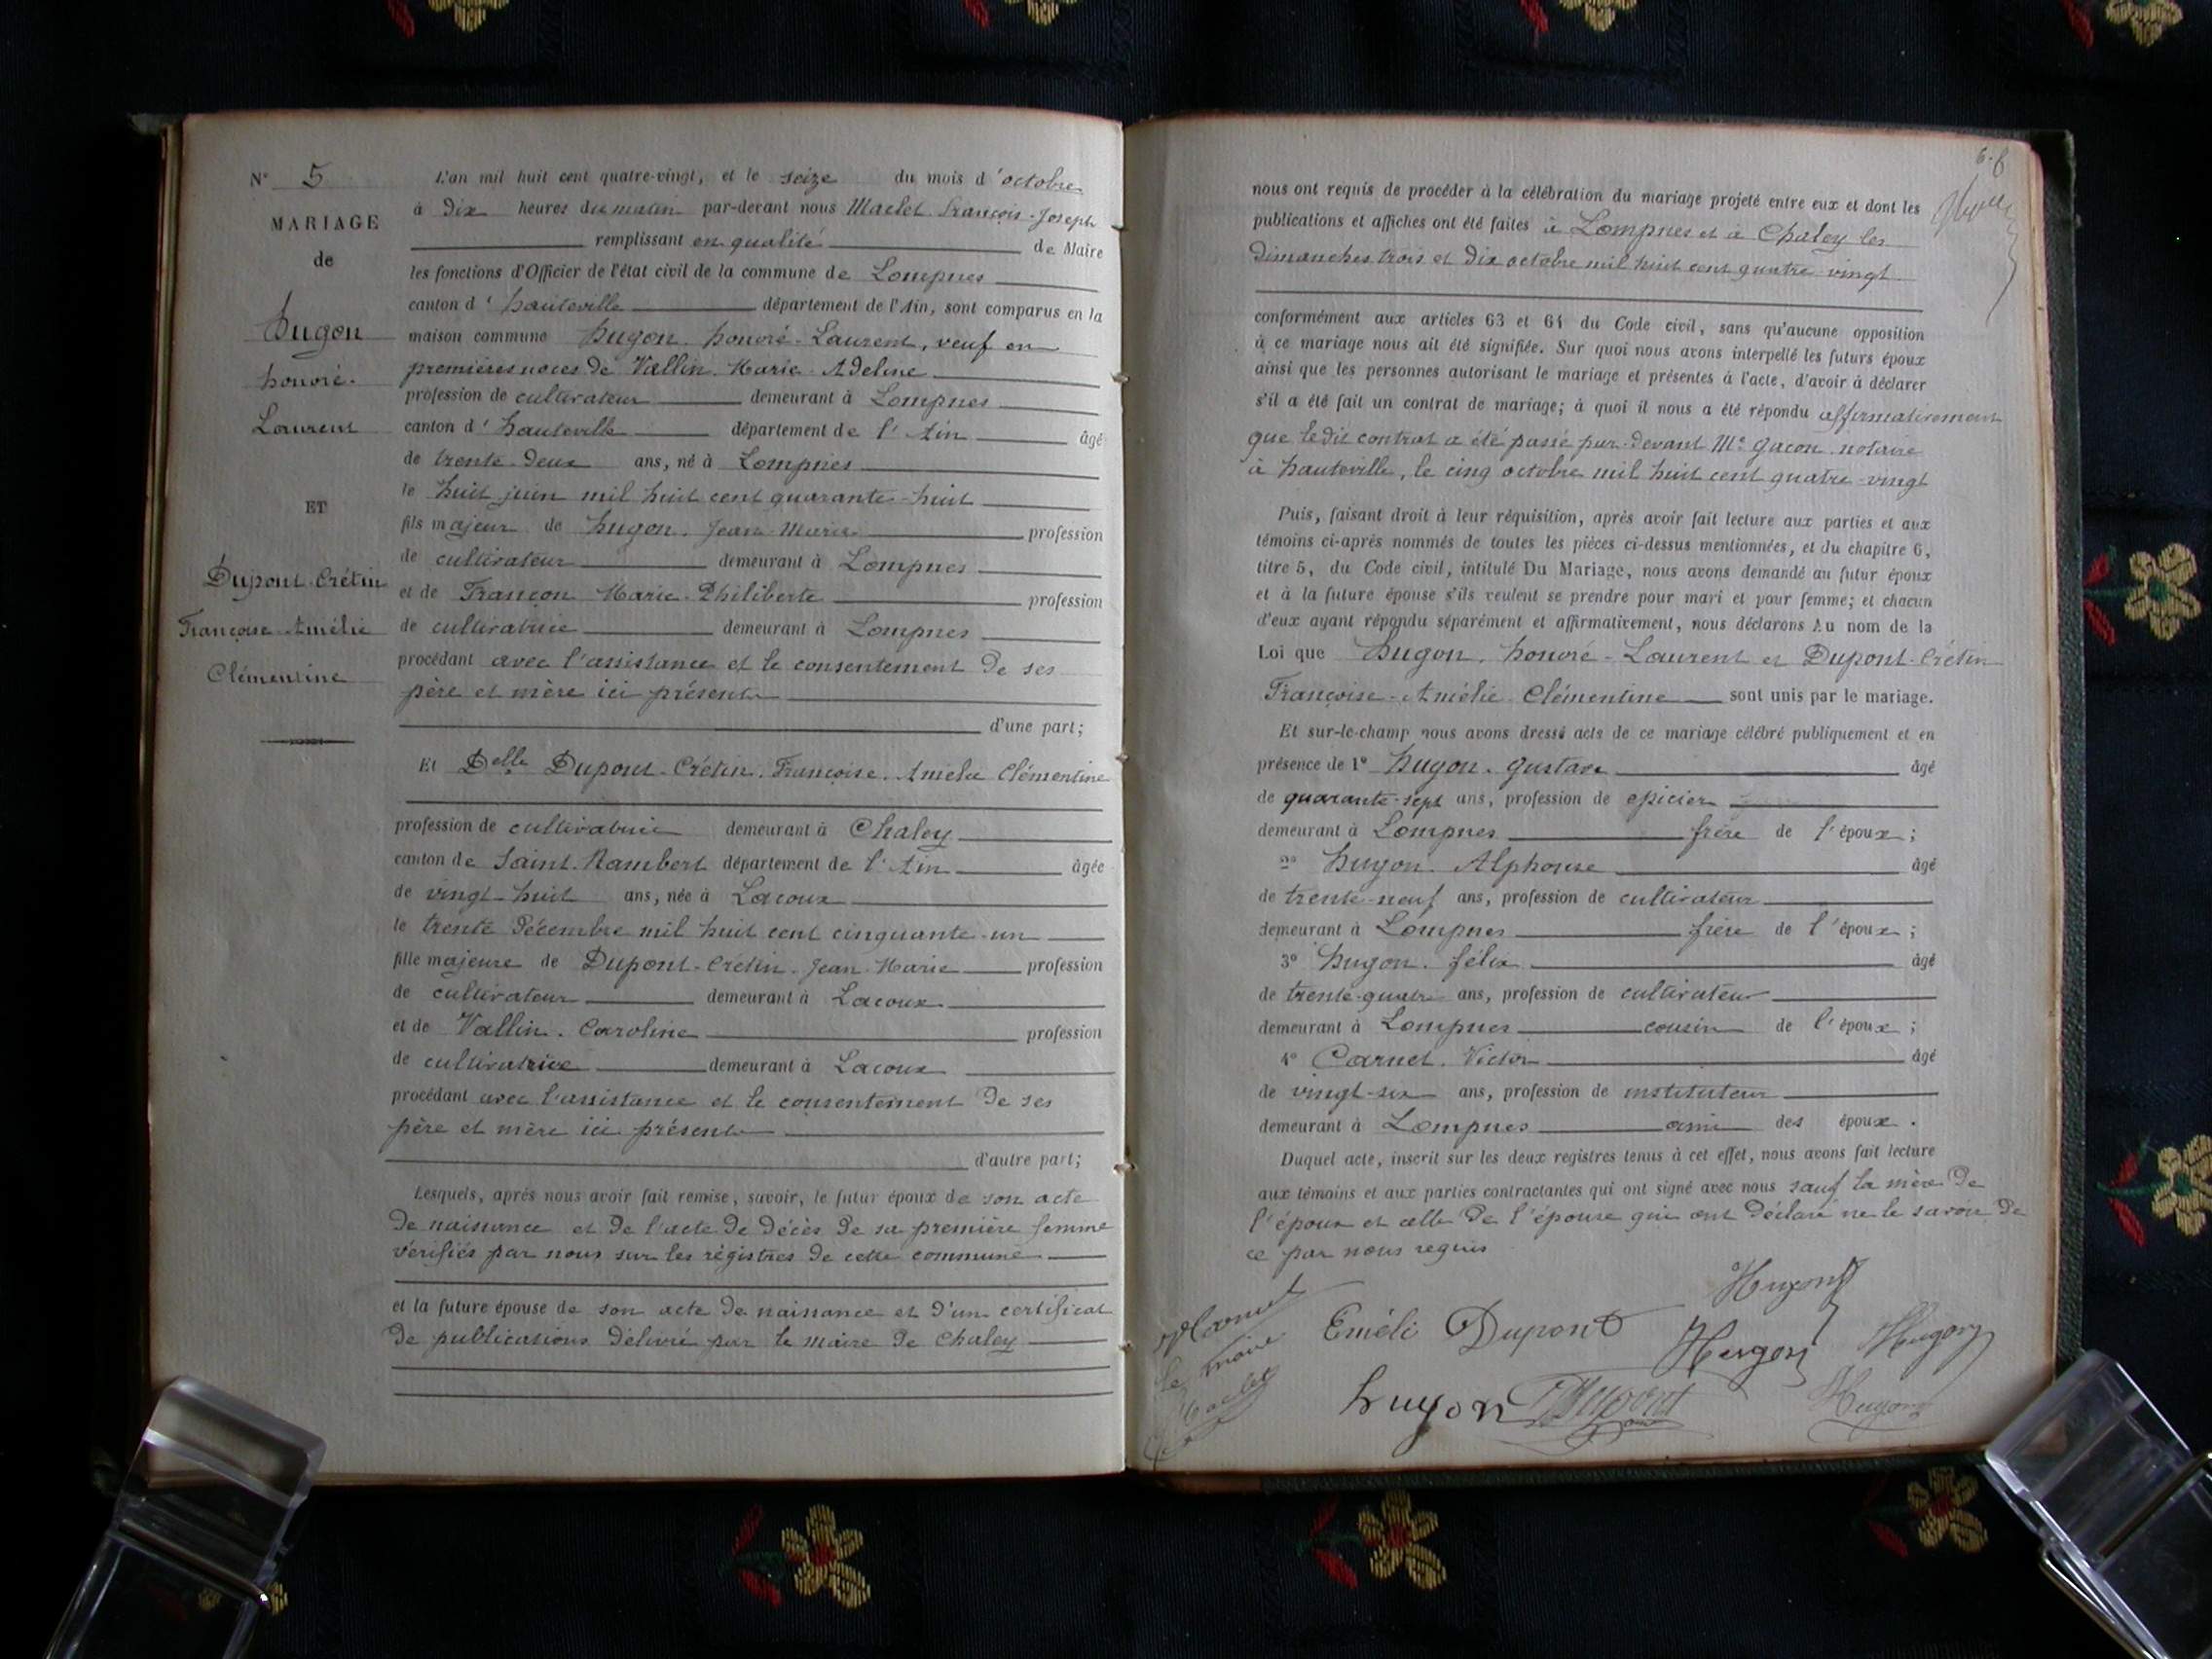 N° 5
MARIAGE
de
Hugon
honoré.
Laurent
ET
Dupont-Crétin
Françoise-Amélie
Clémentine
L'an mil huit cent quatre-vingt, et le seize du mois d'octobre
à dix heures du matin par-devant nous Maclet François-Joseph
remplissant en qualité de Maire
les fonctions d'Officier de l'état civil de la commune de Lompnes
canton d'hauteville département de l'Ain, sont comparus en la
maison commune Hugon honoré-Laurent, veuf en
premières noces de Vallin Marie-Adeline
profession de cultivateur demeurant à Lompnes
canton d'hauteville département de l'Ain âgé
de trente-deux ans, né à Lompnes
le huit juin mil huit cent quarante-huit
fils majeur de hugon. Jean-Marie profession
de cultivateur demeurant à Lompnes
et de Françon Marie-Philiberte profession
de cultivatrice demeurant à Lompnes
procédant avec l'assistance et le consentement de ses
père et mère ici présents
d'une part;
Et Delle Dupont-Crétin. Françoise. Amélie Clémentine
profession de cultivatrice demeurant à Chaley
canton de Saint-Rambert département de l'Ain âgée
de vingt-huit ans, née à Lacoux
le trente décembre mil huit cent cinquante-un
fille majeure de Dupont-Crétin. Jean-Marie profession
de cultivateur demeurant à Lacoux
et de Vallin. Caroline profession
de cultivatrice demeurant à Lacoux
procédant avec l'assistance et le consentement de ses
père et mère ici présents
d'autre part;
Lesquels, après nous avoir fait remise, savoir, le futur époux de son acte
de naissance et de l'acte de décès de sa première femme
vérifiés par nous sur les régistres de cette commune
et la future épouse de son acte de naissance et d'un certificat
de publications délivré par le maire de Chaley
nous ont requis de procéder à la célébration du mariage projeté entre eux et dont les
publications et affiches ont été faites à Lompnes et à Chaley les
dimanches trois et dix octobre mil huit cent quatre-vingt
conformément aux articles 63 et 64 du Code civil, sans qu'aucune opposition
à ce mariage nous ait été signifiée. Sur quoi nous avons interpellé les futurs époux
ainsi que les personnes autorisant le mariage et présentes à l'acte, d'avoir à déclarer
s'il a été fait un contrat de mariage; à quoi il nous a été répondu affirmativement
que le dit contrat a été passé par-devant Me Gacon notaire
à hauteville, le cinq octobre mil huit cent quatre-vingt
Puis, faisant droit à leur réquisition, après avoir fait lecture aux parties et aux
témoins ci-après nommés de toutes les pièces ci-dessus mentionnées, et du chapitre 6,
titre 5, du Code civil, intitulé Du Mariage, nous avons demandé au futur époux
et à la future épouse s'ils veulent se prendre pour mari et pour femme; et chacun
d'eux ayant répondu séparément et affirmativement, nous déclarons Au nom de la
Loi que Hugon, honoré-Laurent et Dupont-Crétin
Françoise-Amélie Clémentine sont unis par le mariage.
Et sur-le-champ nous avons dressé acte de ce mariage célébré publiquement et en
présence de 1° Hugon. Gustave âgé
de quarante-sept ans, profession de epicier
demeurant à Lompnes frère de l'époux;
2° Hugon. Alphonse âgé
de trente-neuf ans, profession de cultivateur
demeurant à Lompnes frère de l'époux;
3° Hugon. félix âgé
de trente-quatre ans, profession de cultivateur
demeurant à Lompnes cousin de l'époux;
4° Carnet. Victor âgé
de vingt-six ans, profession de instituteur
demeurant à Lompnes ami des époux.
Duquel acte, inscrit sur les deux registres tenus à cet effet, nous avons fait lecture
aux témoins et aux parties contractantes qui ont signé avec nous sauf la mère de
l'époux et celle de l'épouse qui ont déclaré ne le savoir de
ce par nous requis
Hugon
Eméli Dupont Hugon Hugon
le maire
Maclet
hugon Dupont Hugon